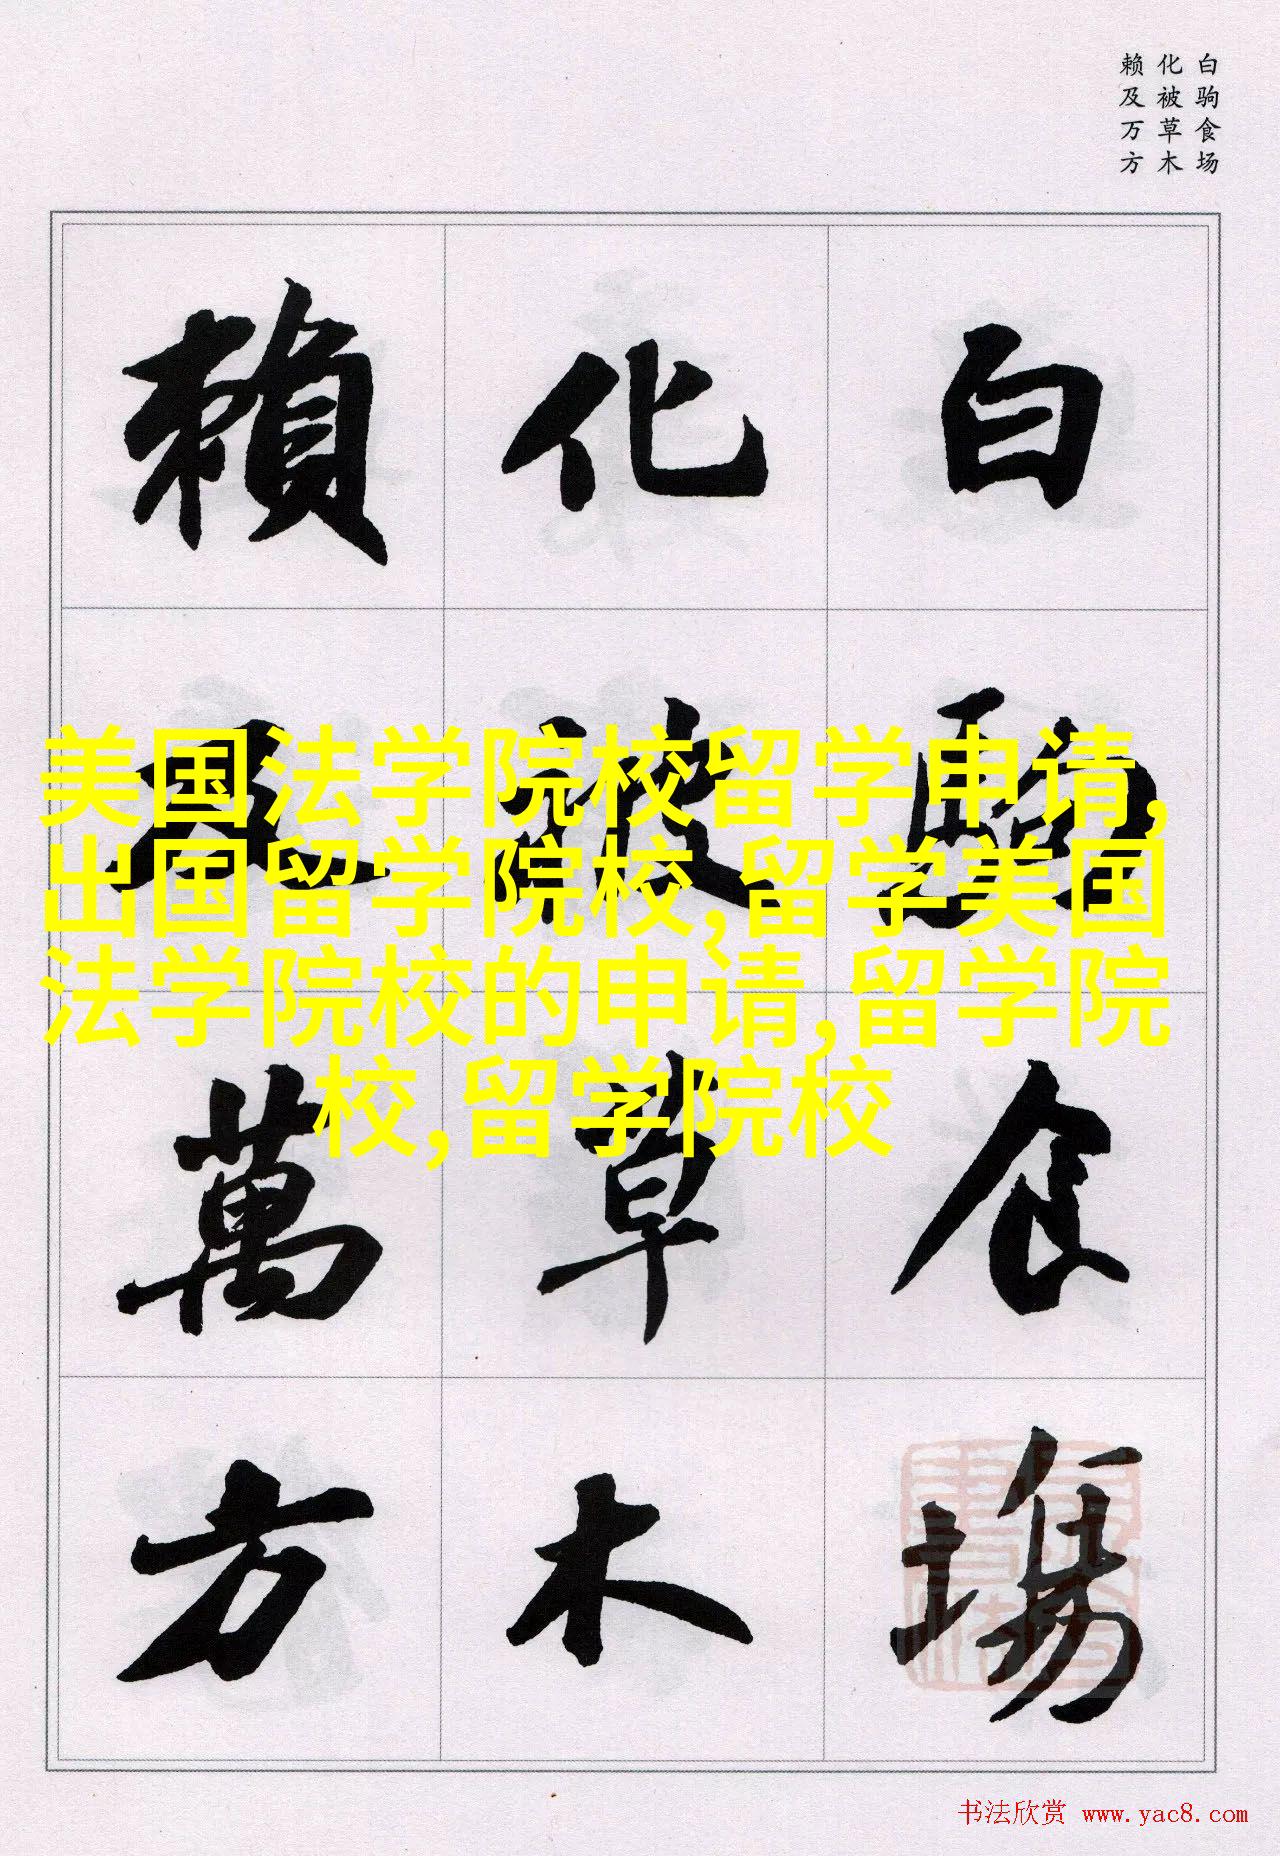 白驹食场
化被草木
赖及万方
白駒食場
化被草木
賴及萬方
美国法学院校留学申请,
出国留学院校,留学美国
法学院校的申请,留学院
校,留学院校
书法欣赏 www.yac8.com